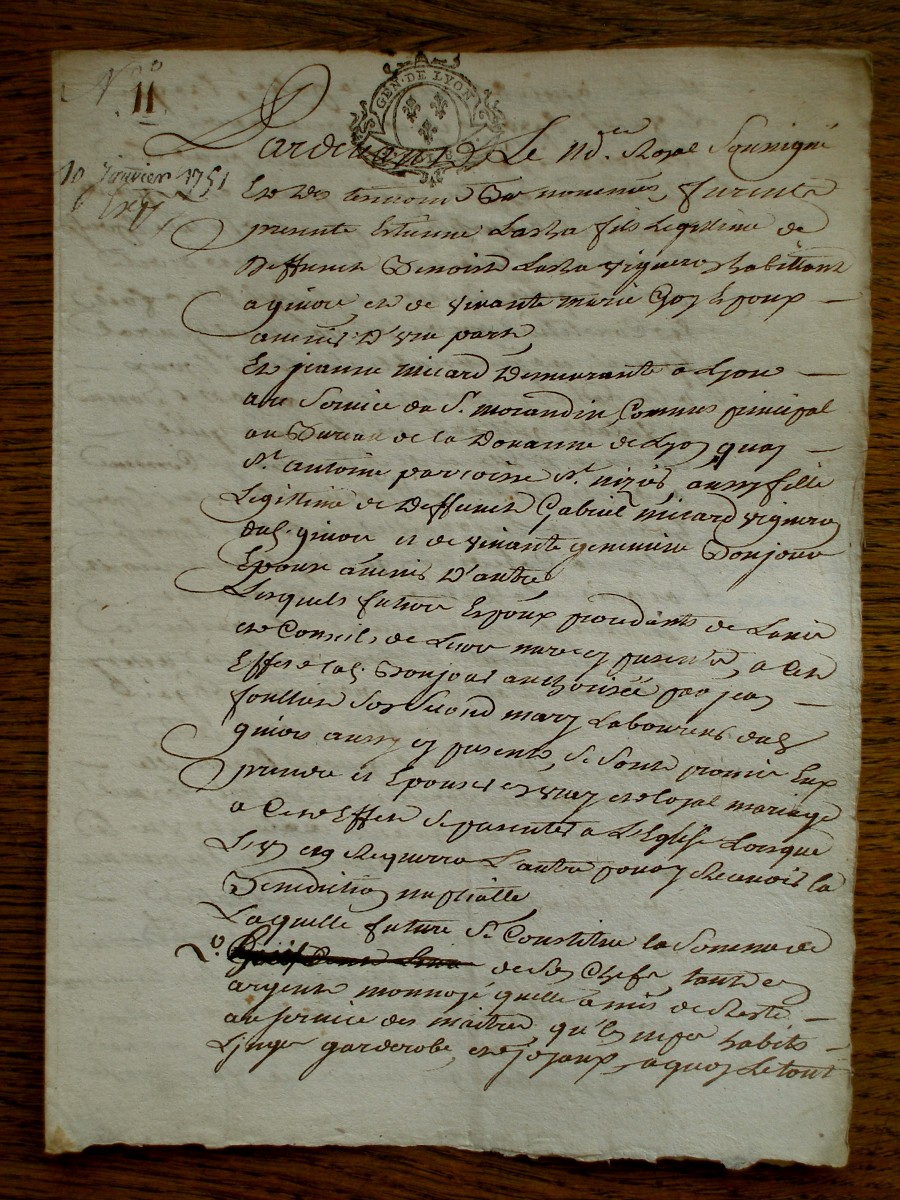 N.o
11
GEN. DE LYON
10 Janvier 1751
Pardevant Le nd.re Royal Soussigné
Et les temoins Bas nommés, furent
presents Estienne Lasta fils Legitime de
Deffunct Benoist Lasta vigneron habittant
a givors, et de vivante marie Epoux
avenir D'une part,
Et jeanne micard Demeurante a Lyon
au Service du Sr. morandin Commis principal
au Bureau de la Douanne de Lyon quay
St. antoine parroisse St. nizier aussy fille
Legittime de Deffunct Gabriel micard vigneron
dud. givors et de vivante genevieve Bonjour
Epouse avenir D'autre
Lesquels futurs Epoux procedants de Lavis
et Conseils de Leur mere cy presente, a Cet
Effet lad. Bonjour authorisée par jean
foullion Son Second mary Laboureur dud.
givors aussy cy present, Se Sont promis Eux
prendre et Epouser en vray et loyal mariage
a Cet Effet Se presenter a L'Eglise Lorsque
L'un en Requerra L'autre pour y Recevoir la
Benediction nuptialle
Laquelle future Se Constitue la Somme de
de Ses Chefs, tant en
argent monnoyé quelle a mis de Reste
au Service des maitres, qu'en habits
Linges garderobe, et joyaux, a quoy Le tout